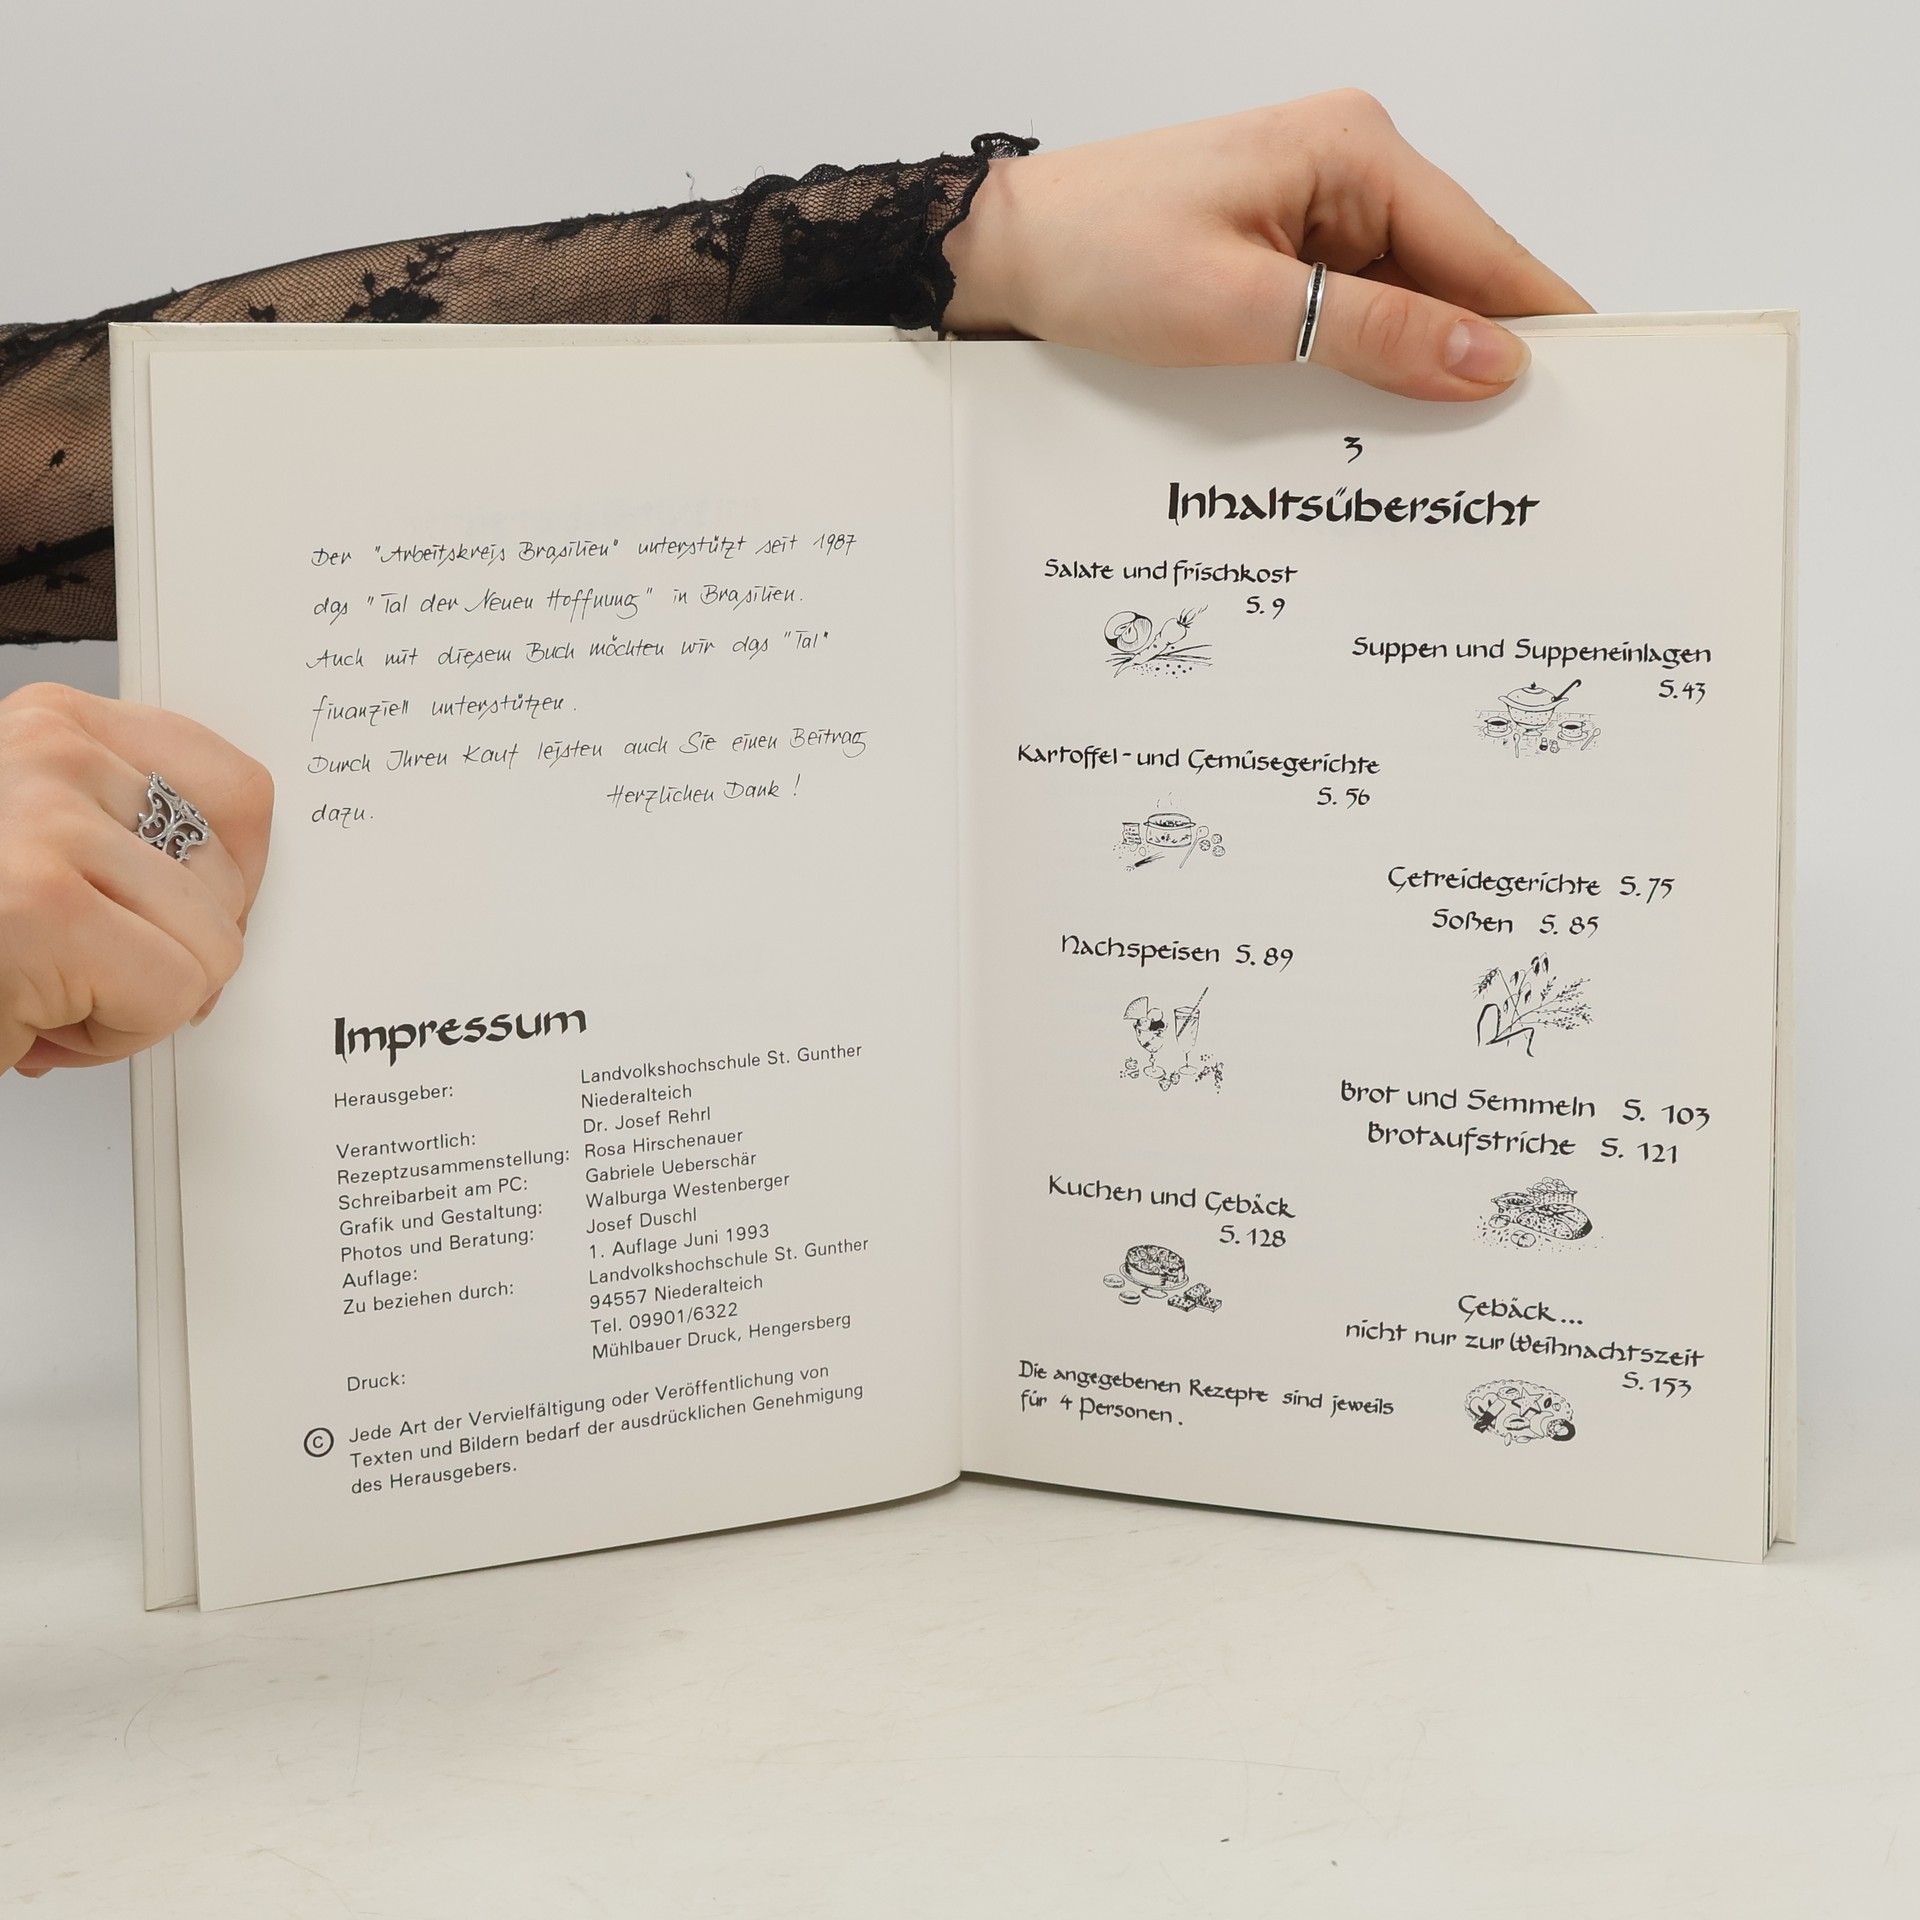 Der "Arbeitskreis Brasilien" unterstützt seit 1987
das "Tal der Neuen Hoffnung" in Brasilien.
Auch mit diesem Buch möchten wir das "Tal"
finanziell unterstützen.
Durch Ihren Kauf leisten auch Sie einen Beitrag
dazu.
Herzlichen Dank!
Impressum
Herausgeber:
Landvolkshochschule St. Gunther
Niederalteich
Verantwortlich:
Dr. Josef Rehrl
Rezeptzusammenstellung:
Rosa Hirschenauer
Schreibarbeit am PC:
Gabriele Ueberschär
Grafik und Gestaltung:
Walburga Westenberger
Photos und Beratung:
Josef Duschl
Auflage:
1. Auflage Juni 1993
Zu beziehen durch:
Landvolkshochschule St. Gunther
94557 Niederalteich
Tel. 09901/6322
Druck:
Mühlbauer Druck, Hengersberg
© Jede Art der Vervielfältigung oder Veröffentlichung von
Texten und Bildern bedarf der ausdrücklichen Genehmigung
des Herausgebers.
3
Inhaltsübersicht
Salate und Frischkost
S. 9
Suppen und Suppeneinlagen
S. 43
Kartoffel- und Gemüsegerichte
S. 56
Getreidegerichte S. 75
Soßen S. 85
Nachspeisen S. 89
Brot und Semmeln S. 103
Brotaufstriche S. 121
Kuchen und Gebäck
S. 128
Gebäck...
nicht nur zur Weihnachtszeit
S. 153
Die angegebenen Rezepte sind jeweils
für 4 Personen.